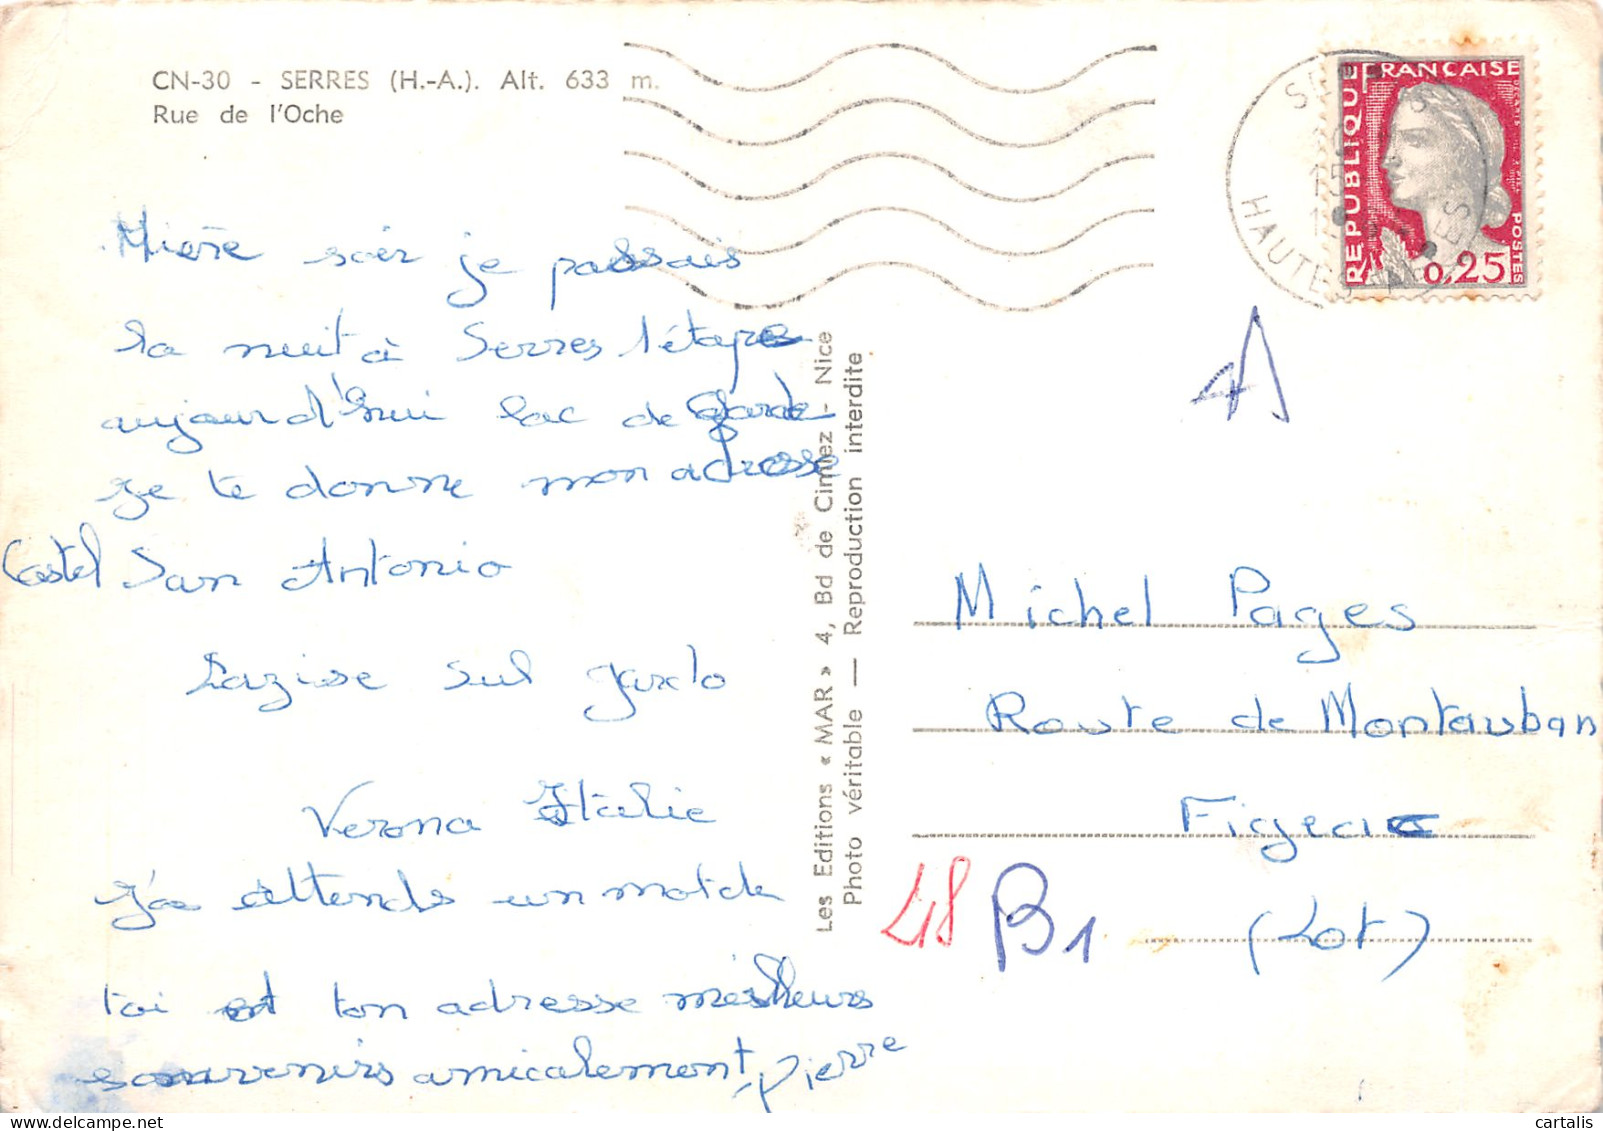 CN-30 - SERRES (H.-A.). Alt. 633 m.
Rue de l'Oche
Hière soir je passais
la nuit à Serres l'étape
aujourd'hui lac de Garde
je te donne mon adresse
Castel San Antonio
Lazise sul Garda
Verona Italie
J'attends un mot de
toi et ton adresse meilleurs
souvenirs amicalement, pierre
Les Editions « MAR » 4, Bd de Cimiez - Nice
Photo véritable — Reproduction interdite
HAUTES ALPES
REPUBLIQUE FRANÇAISE
POSTES
0,25
Michel Pages
Route de Montauban
Figeac
(Lot)
48 B1
cartalis